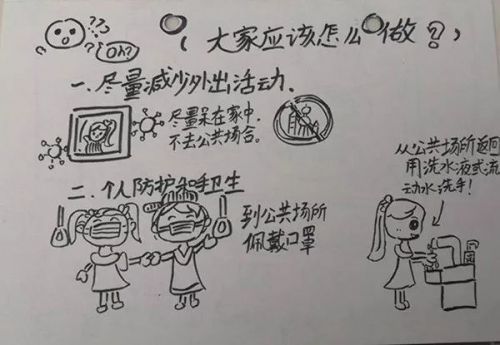 Oh?
(大家应该怎么做？)
一.尽量减少外出活动.
尽量呆在家中，
不去公共场合。
二.个人防护和手卫生
到公共场所
佩戴口罩
从公共场所返回
用洗水液或流
动水洗手!